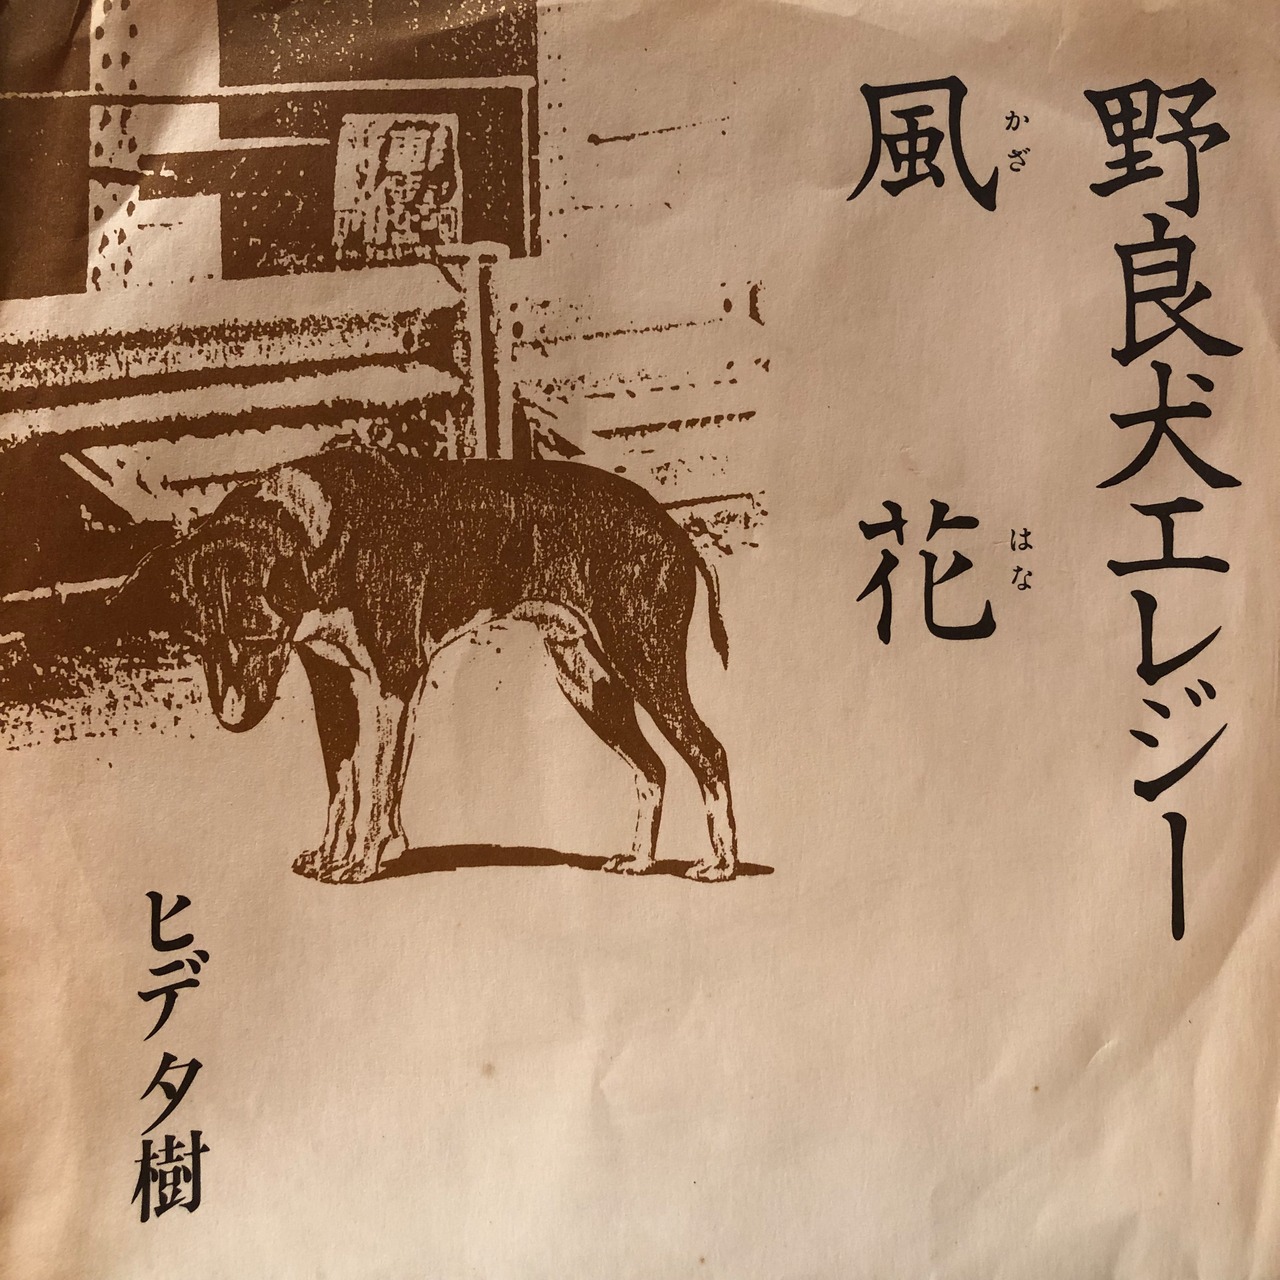 野良犬エレジー
風花
かざ
はな
ヒデタ樹